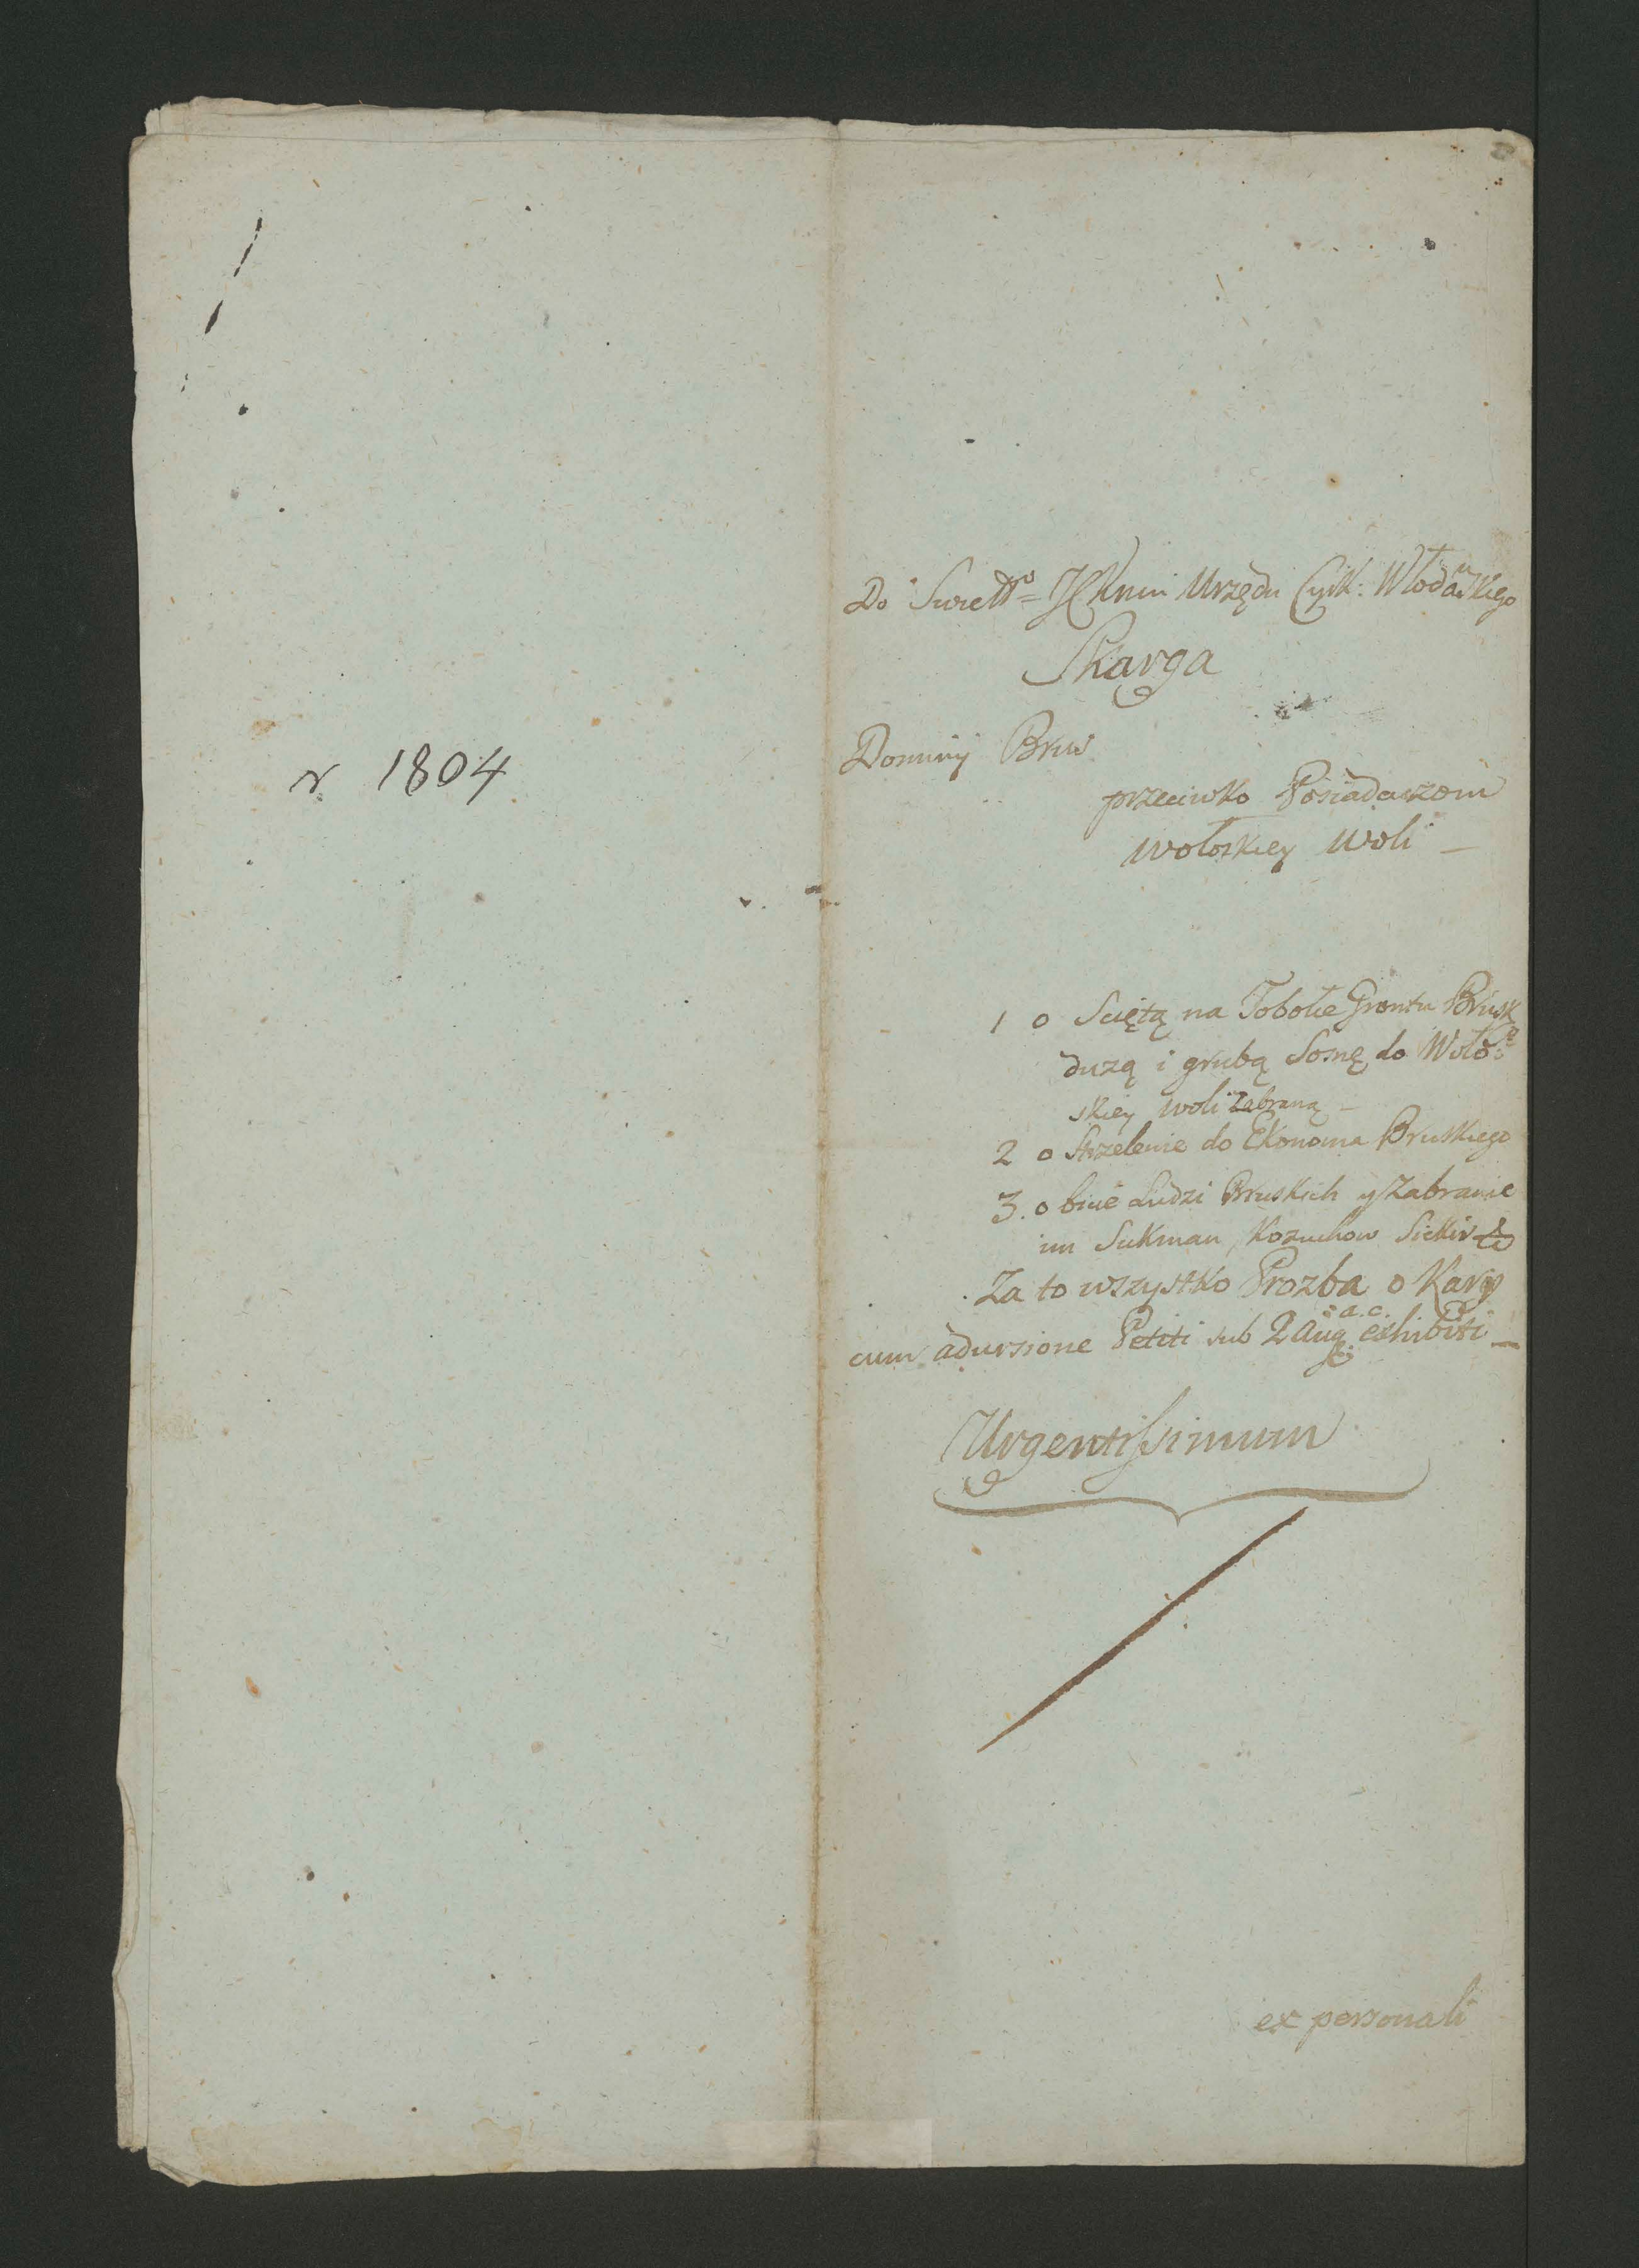 r. 1804
Do Swiettº= JCKmci Urzędu Cyrk: Włodawskiego
Skarga
Dominij Brus
przeciwko Posiadaczom
Wołoskiey Woli –
1 o Sciętą na Tobołce Gruntu Brusk
duzą i grubą Sosnę do Woło=
skiey woli Zabraną –
2 o Strzelenie do Ekonoma Bruskiego
3. o bicie Ludzi Bruskich y Zabranie
im Sukman, Kozuchow Siekir &
Za to wszystko Prozba o Karę
cum adursione Petiti sub 2 Aug: a.c. exhibiti –
Urgentissimum
ex personali